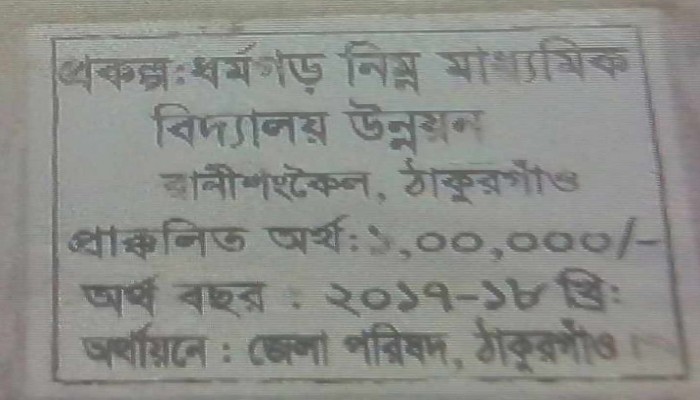 প্রকল্প: ধর্মগড় নিম্ন মাধ্যমিক
বিদ্যালয় উন্নয়ন
রানীশংকৈল, ঠাকুরগাঁও
প্রাক্কলিত অর্থ: ১,০০,০০০/-
অর্থ বছর : ২০১৭-১৮ খ্রি:
অর্থায়নে : জেলা পরিষদ, ঠাকুরগাঁও।